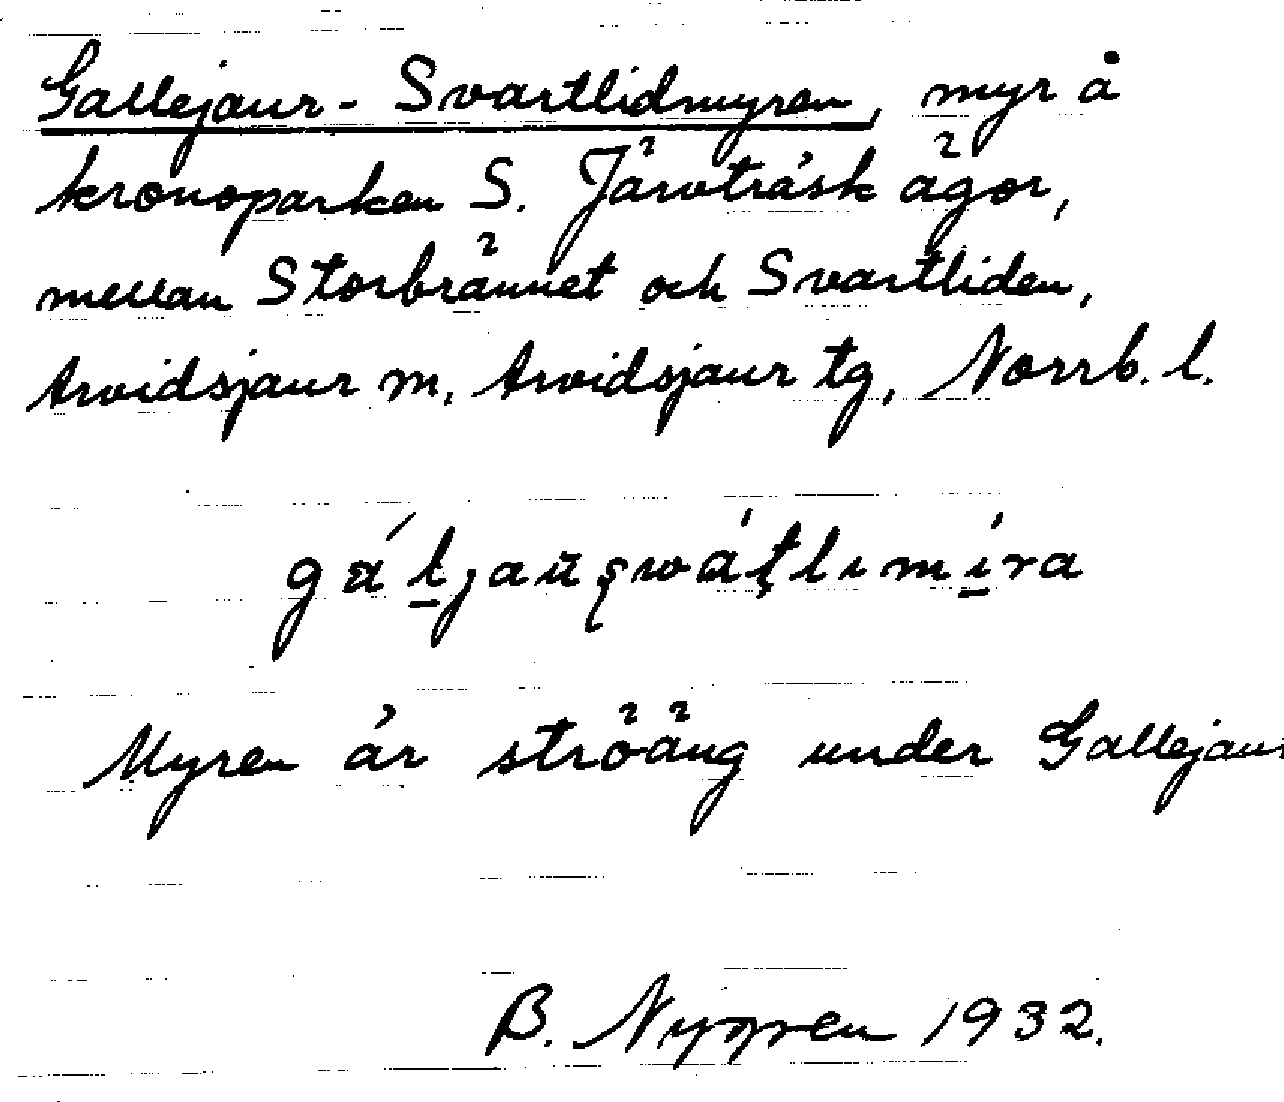 Gallejaur-Svartlidmyren, myr å
kronoparken S. Järvträsk ägor,
mellan Storbrännet och Svartliden,
Arvidsjaur m, Arvidsjaur tg, Norrb. l.
Myren är ströäng under Gallejaur
B. Nygren 1932.